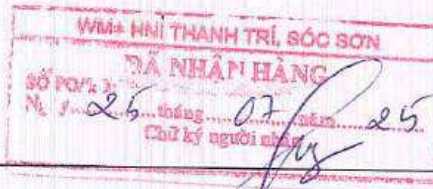 WM+ HNI THANH TRÌ, SÓC SƠN
ĐÃ NHẬN HÀNG
SỐ PO/
25 tháng 07 năm 25
Chữ ký người nhận